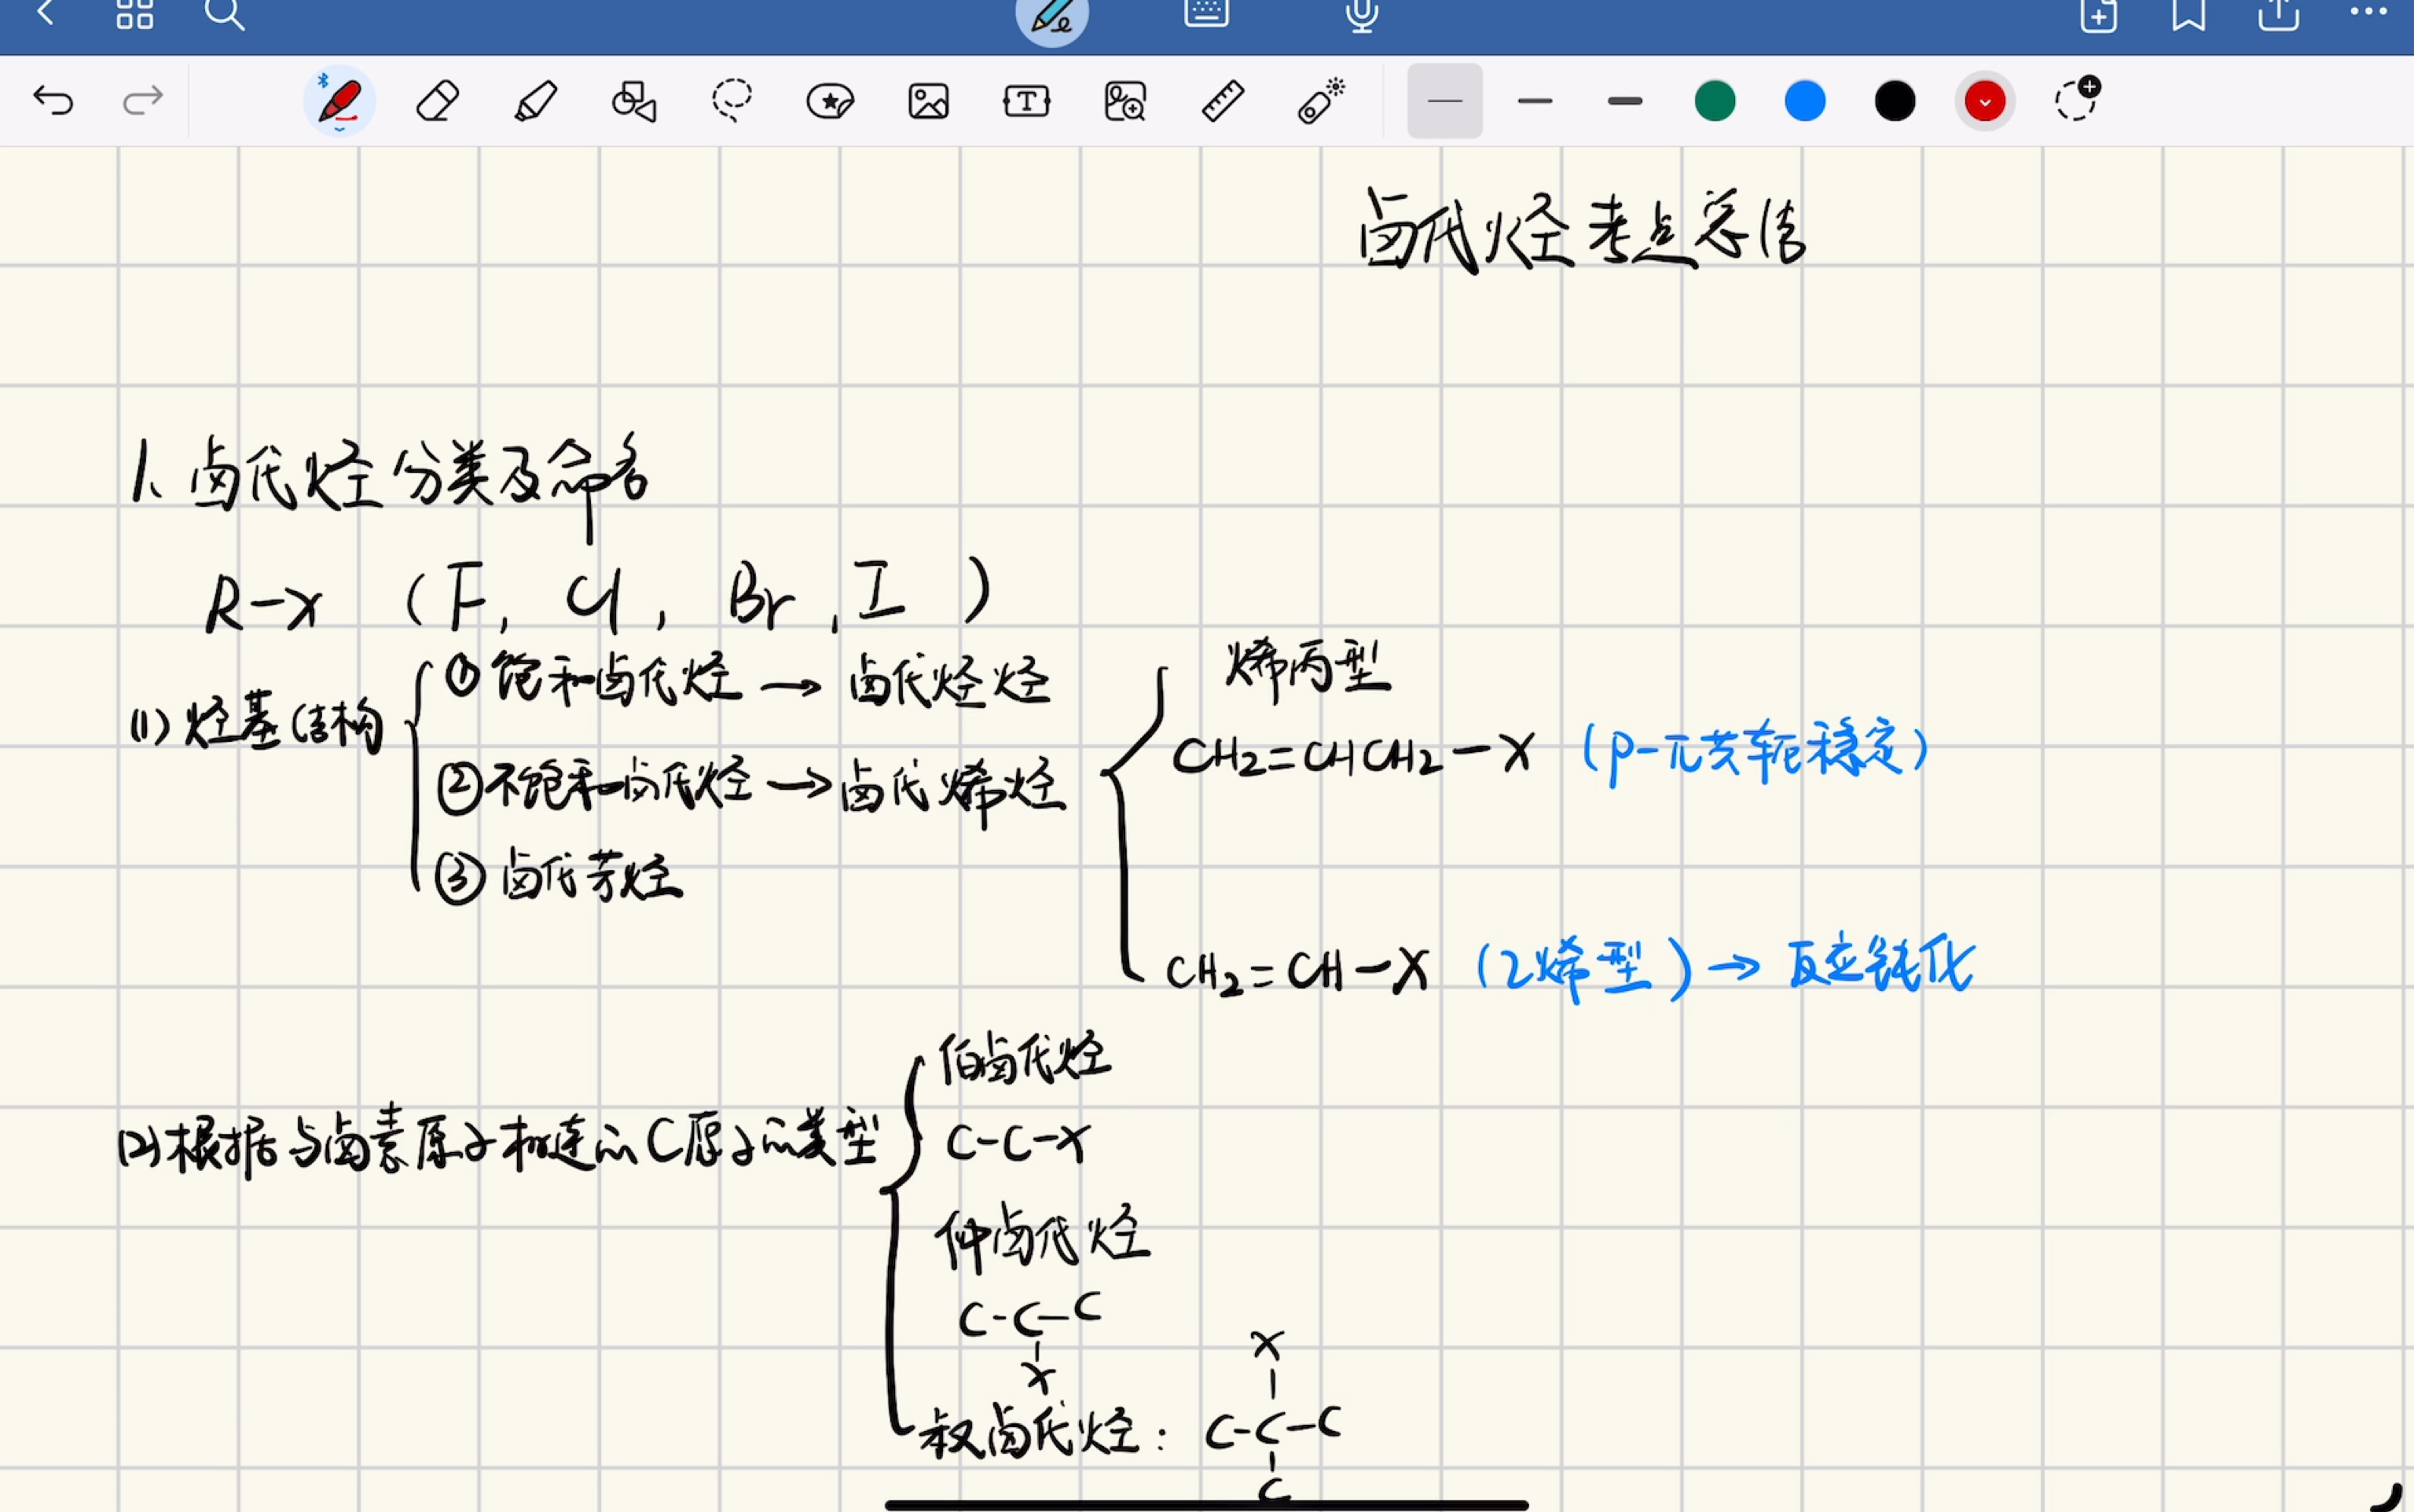 卤代烃考点总结
1、卤代烃分类及命名
R-X (F, Cl, Br, I )
(1) 烃基结构
①饱和卤代烃 → 卤代烃烃
②不饱和卤代烃 → 卤代烯烃
③ 卤代芳烃
烯丙型
CH2=CHCH2-X (p-π共轭稳定)
CH2=CH-X (乙烯型) → 反应钝化
(2) 根据与卤素原子相连的C原子的类型
伯卤代烃
C-C-X
仲卤代烃
C-C-C
X
叔卤代烃:
X
C-C-C
C